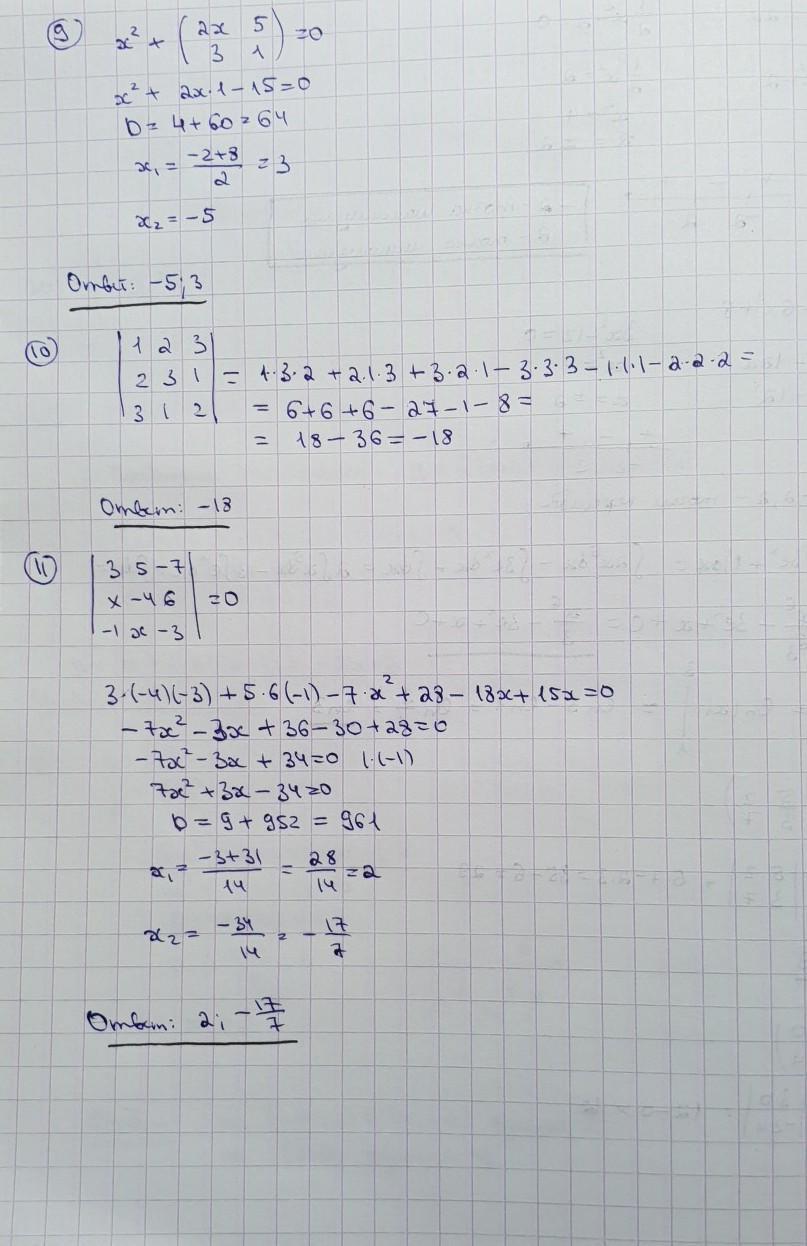 9) x² + (2x 5
3 1) =0
x² + 2x·1 – 15=0
D= 4+60=64
x₁ = (-2+8)/2 = 3
x₂ = -5
Ответ: -5; 3
10) |1 2 3|
|2 3 1| = 1·3·2 + 2·1·3 + 3·2·1 – 3·3·3 – 1·1·1 – 2·2·2 =
|3 1 2| = 6+6+6 – 27 – 1 – 8 =
= 18 – 36 = -18
Ответ: -18
11) |3 5 -7|
|x -4 6| =0
|-1 x -3|
3·(-4)(-3) + 5·6(-1) – 7·x² + 28 – 18x + 15x = 0
-7x² - 3x + 36 – 30 + 28 = 0
-7x² - 3x + 34 = 0 |·(-1)
7x² + 3x – 34 = 0
D = 9 + 952 = 961
x₁ = (-3+31)/14 = 28/14 = 2
x₂ = -34/14 = -17/7
Ответ: 2; -17/7